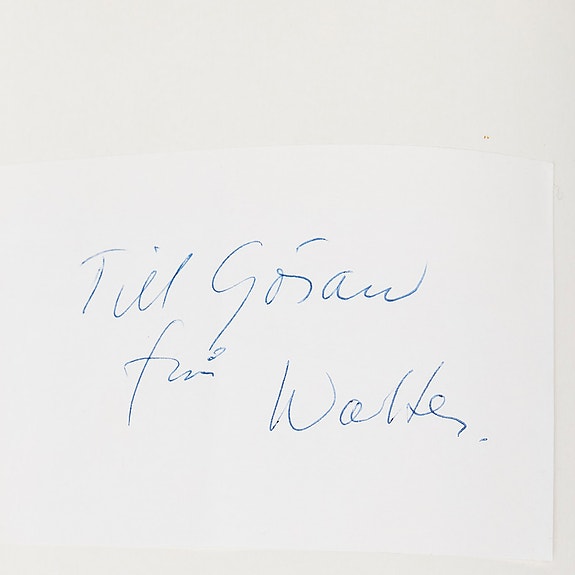 Till Göran
från
Walter.